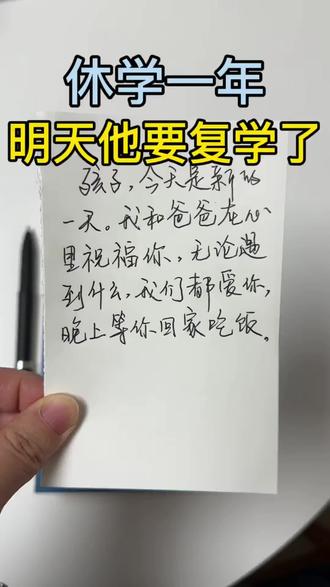 休学一年
明天他要复学了
孩子，今天是新的
一天。我和爸爸在心
里祝福你，无论遇
到什么，我们都爱你，
晚上等你回家吃饭。